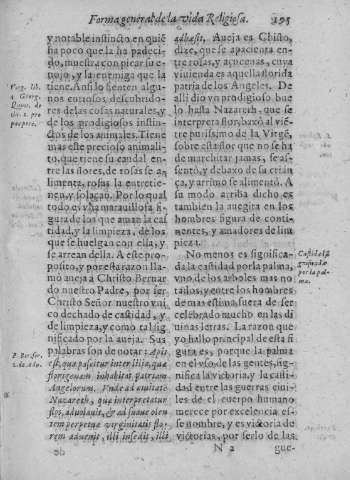 Forma general de la Vida Religiosa. 195
y notable instincto en quiē
ha poco que la ha padeci-
do, muestra con picar su e-
nojo, y la enemiga que la
tiene. Assi lo sienten algun-
nos curiosos descubrido-
res de las cosas naturales, y
de los prodigiosos instin-
ctos de los animales. Tiene
mas este precioso animali-
to, que tiene su caudal en-
tre las flores, de rosas se a-
limenta, rosas la entretie-
nen, y solaçan. Por lo qual
todo es vna marauillosa fi-
gura de los que aman la cas-
tidad, y la limpieza, de los
que se huelgan con ella, y
se arrean della. A este pro-
posito, y por esta razon lla-
mò aueja a Christo Bernar
do nuestro Padre, por ser
Christo Señor nuestro vni
co dechado de castidad, y
de limpieza, y como tal sig
nificado por la aueja. Sus
palabras son de notar: Apis
est, quæ pascitur inter lilia, quæ
florigenam inhabitat patriam
Angelorum. Vnde ad ciuitatē
Nazareth, quæ interpretatur
flos, aduolauit, & ad suaue olen
tem perpetuæ virginitatis flo-
rem aduenit, illi insedit, illi
Virg. lib.
4. Georg.
P. Bernar.
adhæsit. Aueja es Chisto,
dize, que se apacienta en-
tre rosas, y açucenas, cuya
viuienda es aquella florida
patria de los Angeles. De
alli dio vn prodigioso bue
lo hasta Nazareth, que se
interpreta flor, baxò al viē-
tre purissimo de la Virgē,
sobre esta flor que no se ha
de marchitar jamas, se as-
sentò, y debaxo de su crian
ça, y arrimo se alimentò. A
su modo arriba dicho es
tambien la auegita en los
hombres figura de conti-
nentes, y amadores de lim
pieza.
No menos es significa-
da la castidad por la palma,
vno de los arboles mas no
tados, y entre los hombres
de mas estima, fuera de ser
celebrado mucho en las di
uinas letras. La razon que
yo hallo principal de esta fi
gura es, porque la palma
en el vso de las gentes, sig-
nifica la vitoria, y la casti-
dad entre las guerras ciui-
les de el cuerpo humano
merece por excelencia es-
se nombre, y es vitoria de
victorias, por serlo de las
Castidad
por la pal-
ma.
N 2 gue-